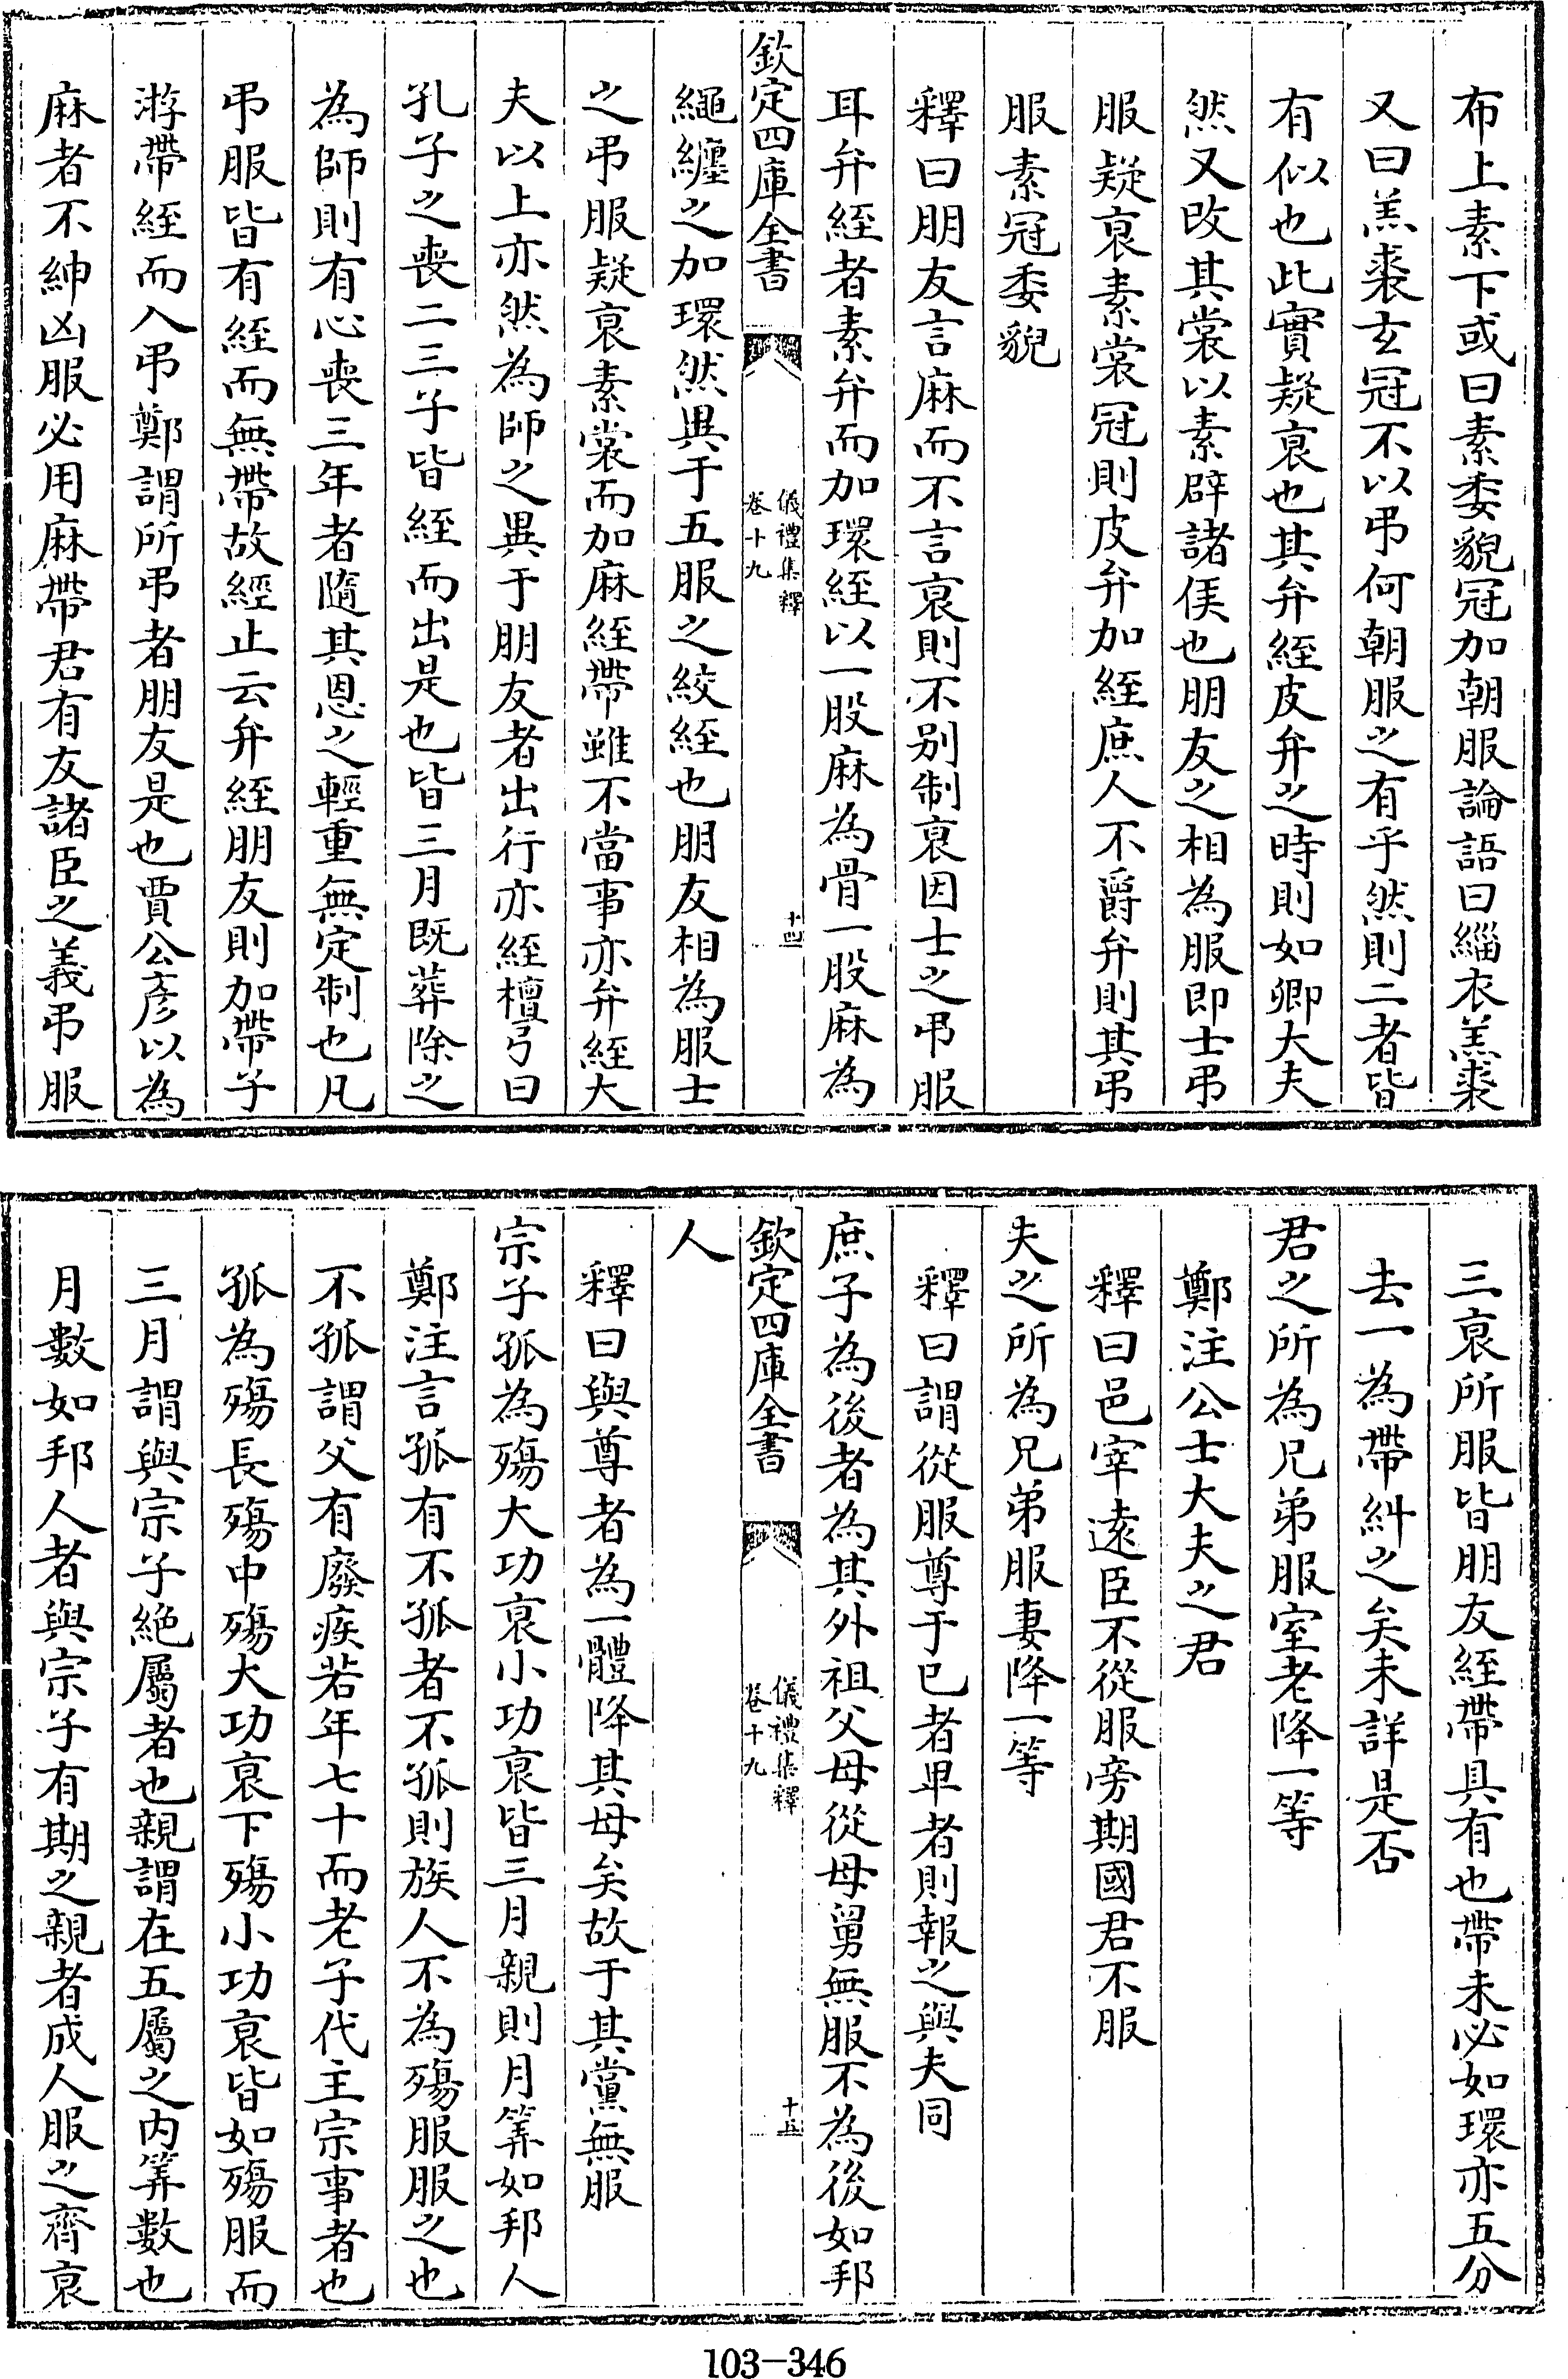 布上素下或曰素委貌冠加朝服論語曰緇衣羔裘
又曰羔裘玄冠不以弔何朝服之有乎然則二者皆
有似也此實疑衰也其弁絰皮弁之時則如卿大夫
然又改其裳以素辟諸侯也朋友之相為服即士弔
服疑衰素裳冠則皮弁加絰庶人不爵弁則其弔
服素冠委貌
釋曰朋友言麻而不言衰則不别制衰因士之弔服
耳弁絰者素弁而加環絰以一股麻為骨一股麻為
欽定四庫全書
儀禮集釋
卷十九
十四
繩纏之加環然異于五服之絞絰也朋友相為服士
之弔服疑衰素裳而加麻絰帶雖不當事亦弁絰大
夫以上亦然為師之異于朋友者出行亦絰檀弓曰
孔子之喪二三子皆絰而出是也皆三月既葬除之
為師則有心喪三年者隨其恩之輕重無定制也凡
弔服皆有絰而無帶故經止云弁絰朋友則加帶子
游帶絰而入弔鄭謂所弔者朋友是也賈公彥以為
麻者不紳凶服必用麻帶君有友諸臣之義弔服
三衰所服皆朋友絰帶具有也帶未必如環亦五分
去一為帶糾之矣未詳是否
君之所為兄弟服室老降一等
鄭注公士大夫之君
釋曰邑宰遠臣不從服旁期國君不服
夫之所為兄弟服妻降一等
釋曰謂從服尊于已者卑者則報之與夫同
庶子為後者為其外祖父母從母舅無服不為後如邦
欽定四庫全書
儀禮集釋
卷十九
十五
人
釋曰與尊者為一體降其母矣故于其黨無服
宗子孤為殤大功衰小功衰皆三月親則月筭如邦人
鄭注言孤有不孤者不孤則族人不為殤服服之也
不孤謂父有廢疾若年七十而老子代主宗事者也
孤為殤長殤中殤大功衰下殤小功衰皆如殤服而
三月謂與宗子絶屬者也親謂在五屬之内筭數也
月數如邦人者與宗子有期之親者成人服之齊衰
103-346